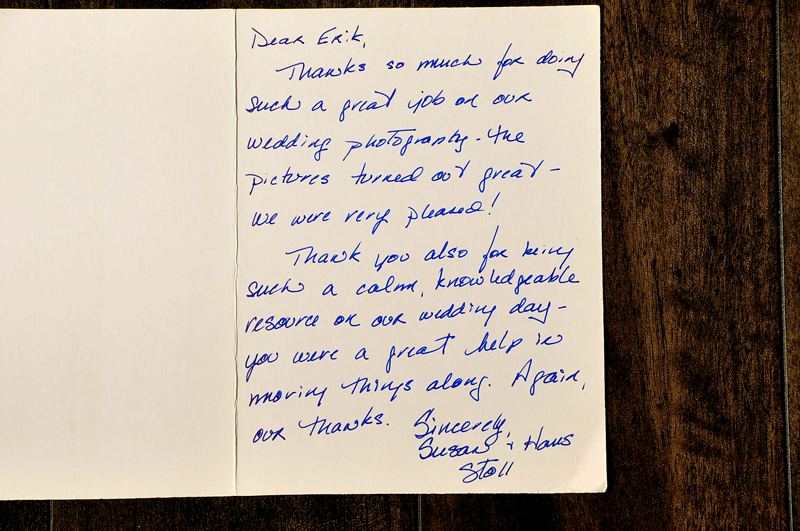 Dear Erik,
Thanks so much for doing
such a great job on our
wedding photography - the
pictures turned out great -
we were very pleased!
Thank you also for being
such a calm, knowledgeable
resource on our wedding day -
you were a great help in
moving things along. Again,
our thanks. Sincerely,
Susan + Hans
Stoll